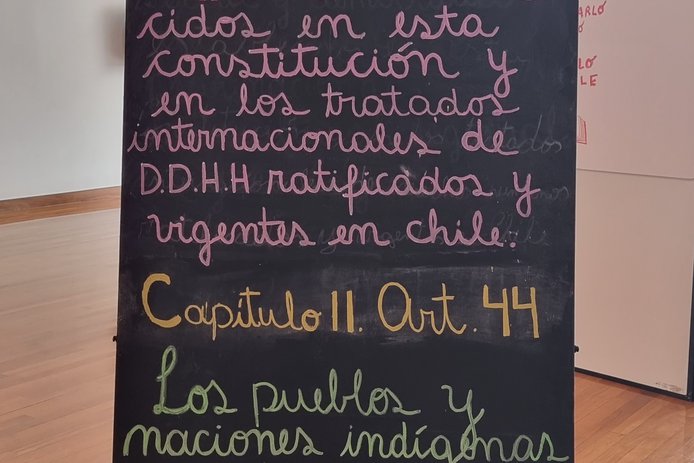 cidos en esta
constitución y
en los tratados
internacionales de
D.D.H.H ratificados y
vigentes en chile.
Capítulo II. Art. 44
Los pueblos y
naciones indígenas
ARLÓ
LO
LE